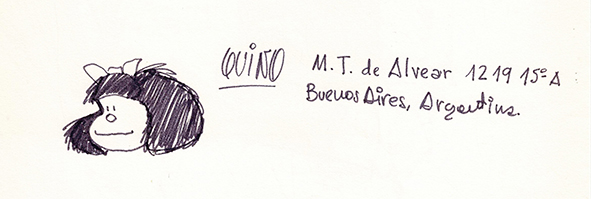 QUINO M.T. de Alvear 1219 15º A
Buenos Aires, Argentina.